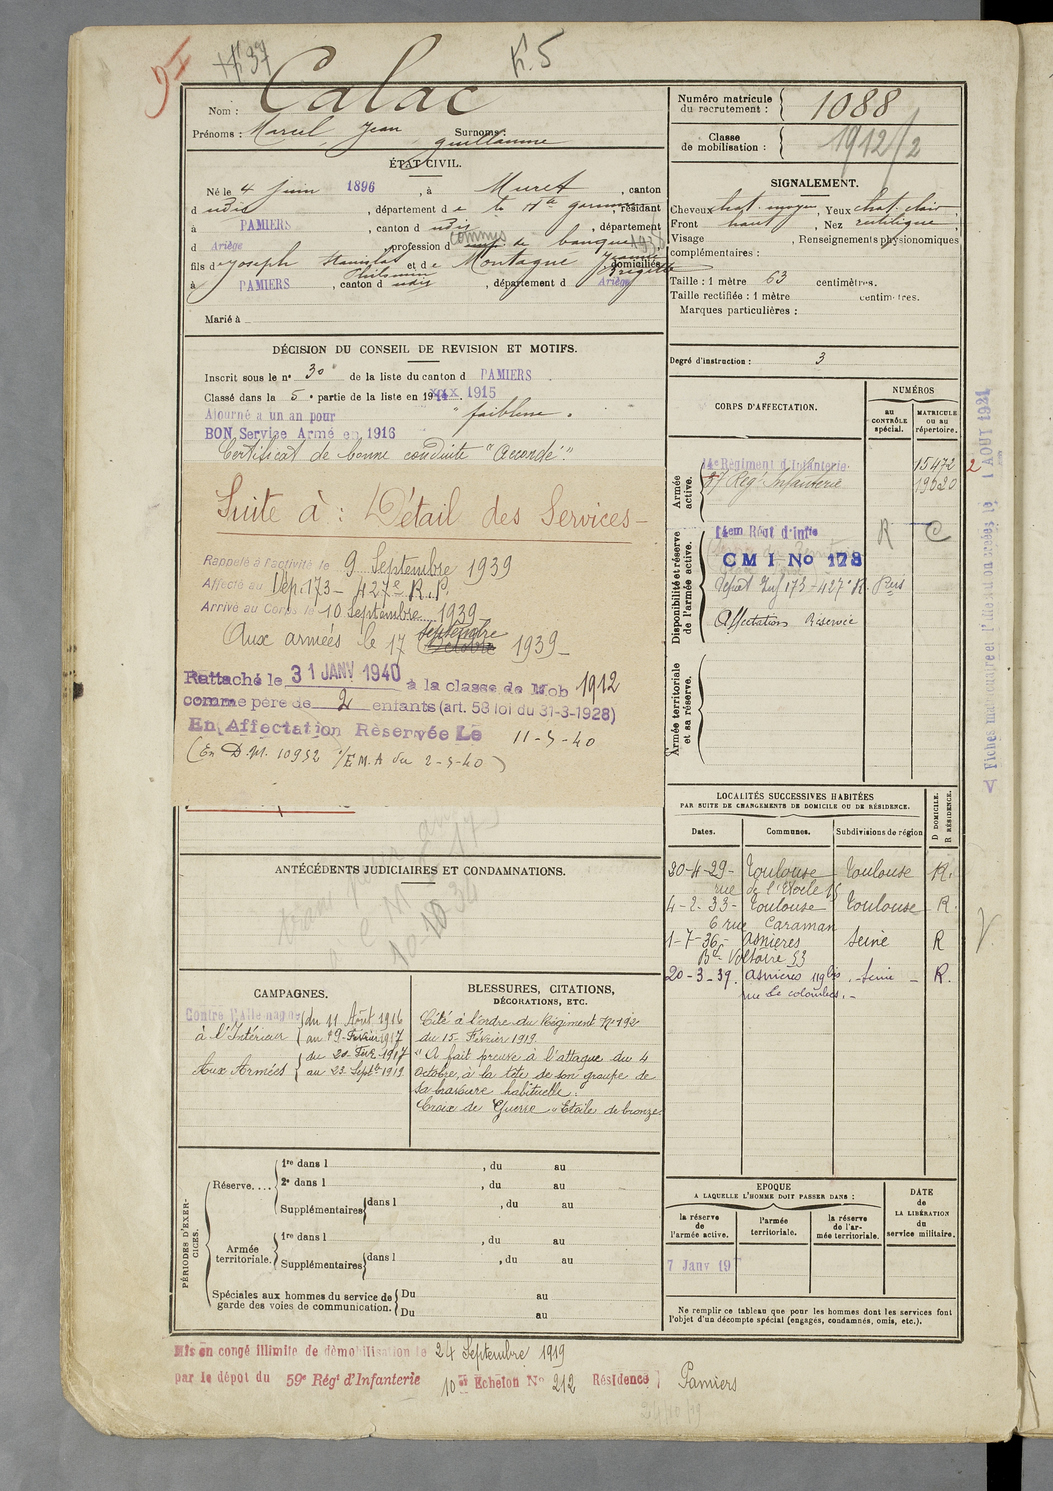 K.5
Nom : Calac
Prénoms : Marcel, Jean Surnoms : guillaume
ÉTAT CIVIL.
Né le 4 juin 1896, à Muret, canton
d udis, département d e la Hte garonne, résidant
à PAMIERS, canton d udis, département
d Ariège, profession d commis de banque 1938
fils de Joseph Stanislas Philémin et de Montagne Jeanne Brigitte domiciliés
à PAMIERS, canton d udis, département d Ariège
Marié à
DÉCISION DU CONSEIL DE REVISION ET MOTIFS.
Inscrit sous le n° 30 de la liste du canton d PAMIERS
Classé dans la 5e partie de la liste en 1915
Ajourné a un an pour "faiblesse".
BON Service Armé en 1916
Certificat de bonne conduite "Accordé".
Suite à : Détail des Services -
Rappelé à l'activité le 9 Septembre 1939
Affecté au Dép. 173 - 427e R.P.
Arrivé au Corps le 10 Septembre 1939
Aux armées le 17 septembre 1939 -
Rattaché le 31 JANV 1940 à la classe de Mob 1912
comme père de 2 enfants (art. 58 loi du 31-3-1928)
En Affectation Réservée Le 11-5-40
(En D.M. 10952 1/E.M.A du 2-5-40)
ANTÉCÉDENTS JUDICIAIRES ET CONDAMNATIONS.
CAMPAGNES.
Contre l'Allemagne
à l'Intérieur
du 11 Août 1916
au 19 Février 1917
Aux Armées
du 20 Fév. 1917
au 23 Septbre 1919
BLESSURES, CITATIONS,
DÉCORATIONS, ETC.
Cité à l'ordre du Régiment N° 192
du 15 Février 1919.
"A fait preuve à l'attaque du 4
octobre, à la tête de son groupe de
sa bravoure habituelle.
Croix de Guerre "Etoile de bronze
PÉRIODES D'EXERCICES.
Réserve....
1re dans l , du au
2e dans l , du au
Supplémentaires dans l , du au
Armée territoriale.
1re dans l , du au
Supplémentaires dans l , du au
Spéciales aux hommes du service de
garde des voies de communication.
Du au
Du au
Mis en congé illimité de démobilisation le 24 Septembre 1919
par le dépot du 59e Régt d'Infanterie 10e Echelon N° 212 Résidence Pamiers
Numéro matricule
du recrutement : 1088
Classe
de mobilisation : 1912/2
SIGNALEMENT.
Cheveux chat. moyen, Yeux chat. clair
Front haut, Nez rectiligne
Visage , Renseignements physionomiques
complémentaires :
Taille : 1 mètre 63 centimètres.
Taille rectifiée : 1 mètre centimètres.
Marques particulières :
Degré d'instruction : 3
CORPS D'AFFECTATION.
NUMÉROS
AU CONTRÔLE spécial.
MATRICULE OU au répertoire.
Armée active.
14e Régiment d'Infanterie 15472
Reg. Infanterie 19520
Disponibilité et réserve de l'armée active.
14em Régt d'Infie R C
CMI No 178
Dépot Inf 173 - 427e R. Pres
Affectation Réservée
Armée territoriale et sa réserve.
LOCALITÉS SUCCESSIVES HABITÉES
PAR SUITE DE CHANGEMENTS DE DOMICILE OU DE RÉSIDENCE.
D DOMICILE. R RÉSIDENCE.
Dates. Communes. Subdivisions de région
30-4-29 - Toulouse Toulouse R.
rue de l'Etoile 15
4-2-33 - Toulouse Toulouse R.
6 rue Caraman
1-7-36 - Asnières Seine R
Bd Voltaire 53
20-3-39. Asnières 119 bis Seine - R.
rue de colombes. -
EPOQUE
A LAQUELLE L'HOMME DOIT PASSER DANS :
la réserve de l'armée active.
l'armée territoriale.
la réserve de l'armée territoriale.
DATE DE LA LIBÉRATION du service militaire.
7 Janv 19
Ne remplir ce tableau que pour les hommes dont les services font
l'objet d'un décompte spécial (engagés, condamnés, omis, etc.).